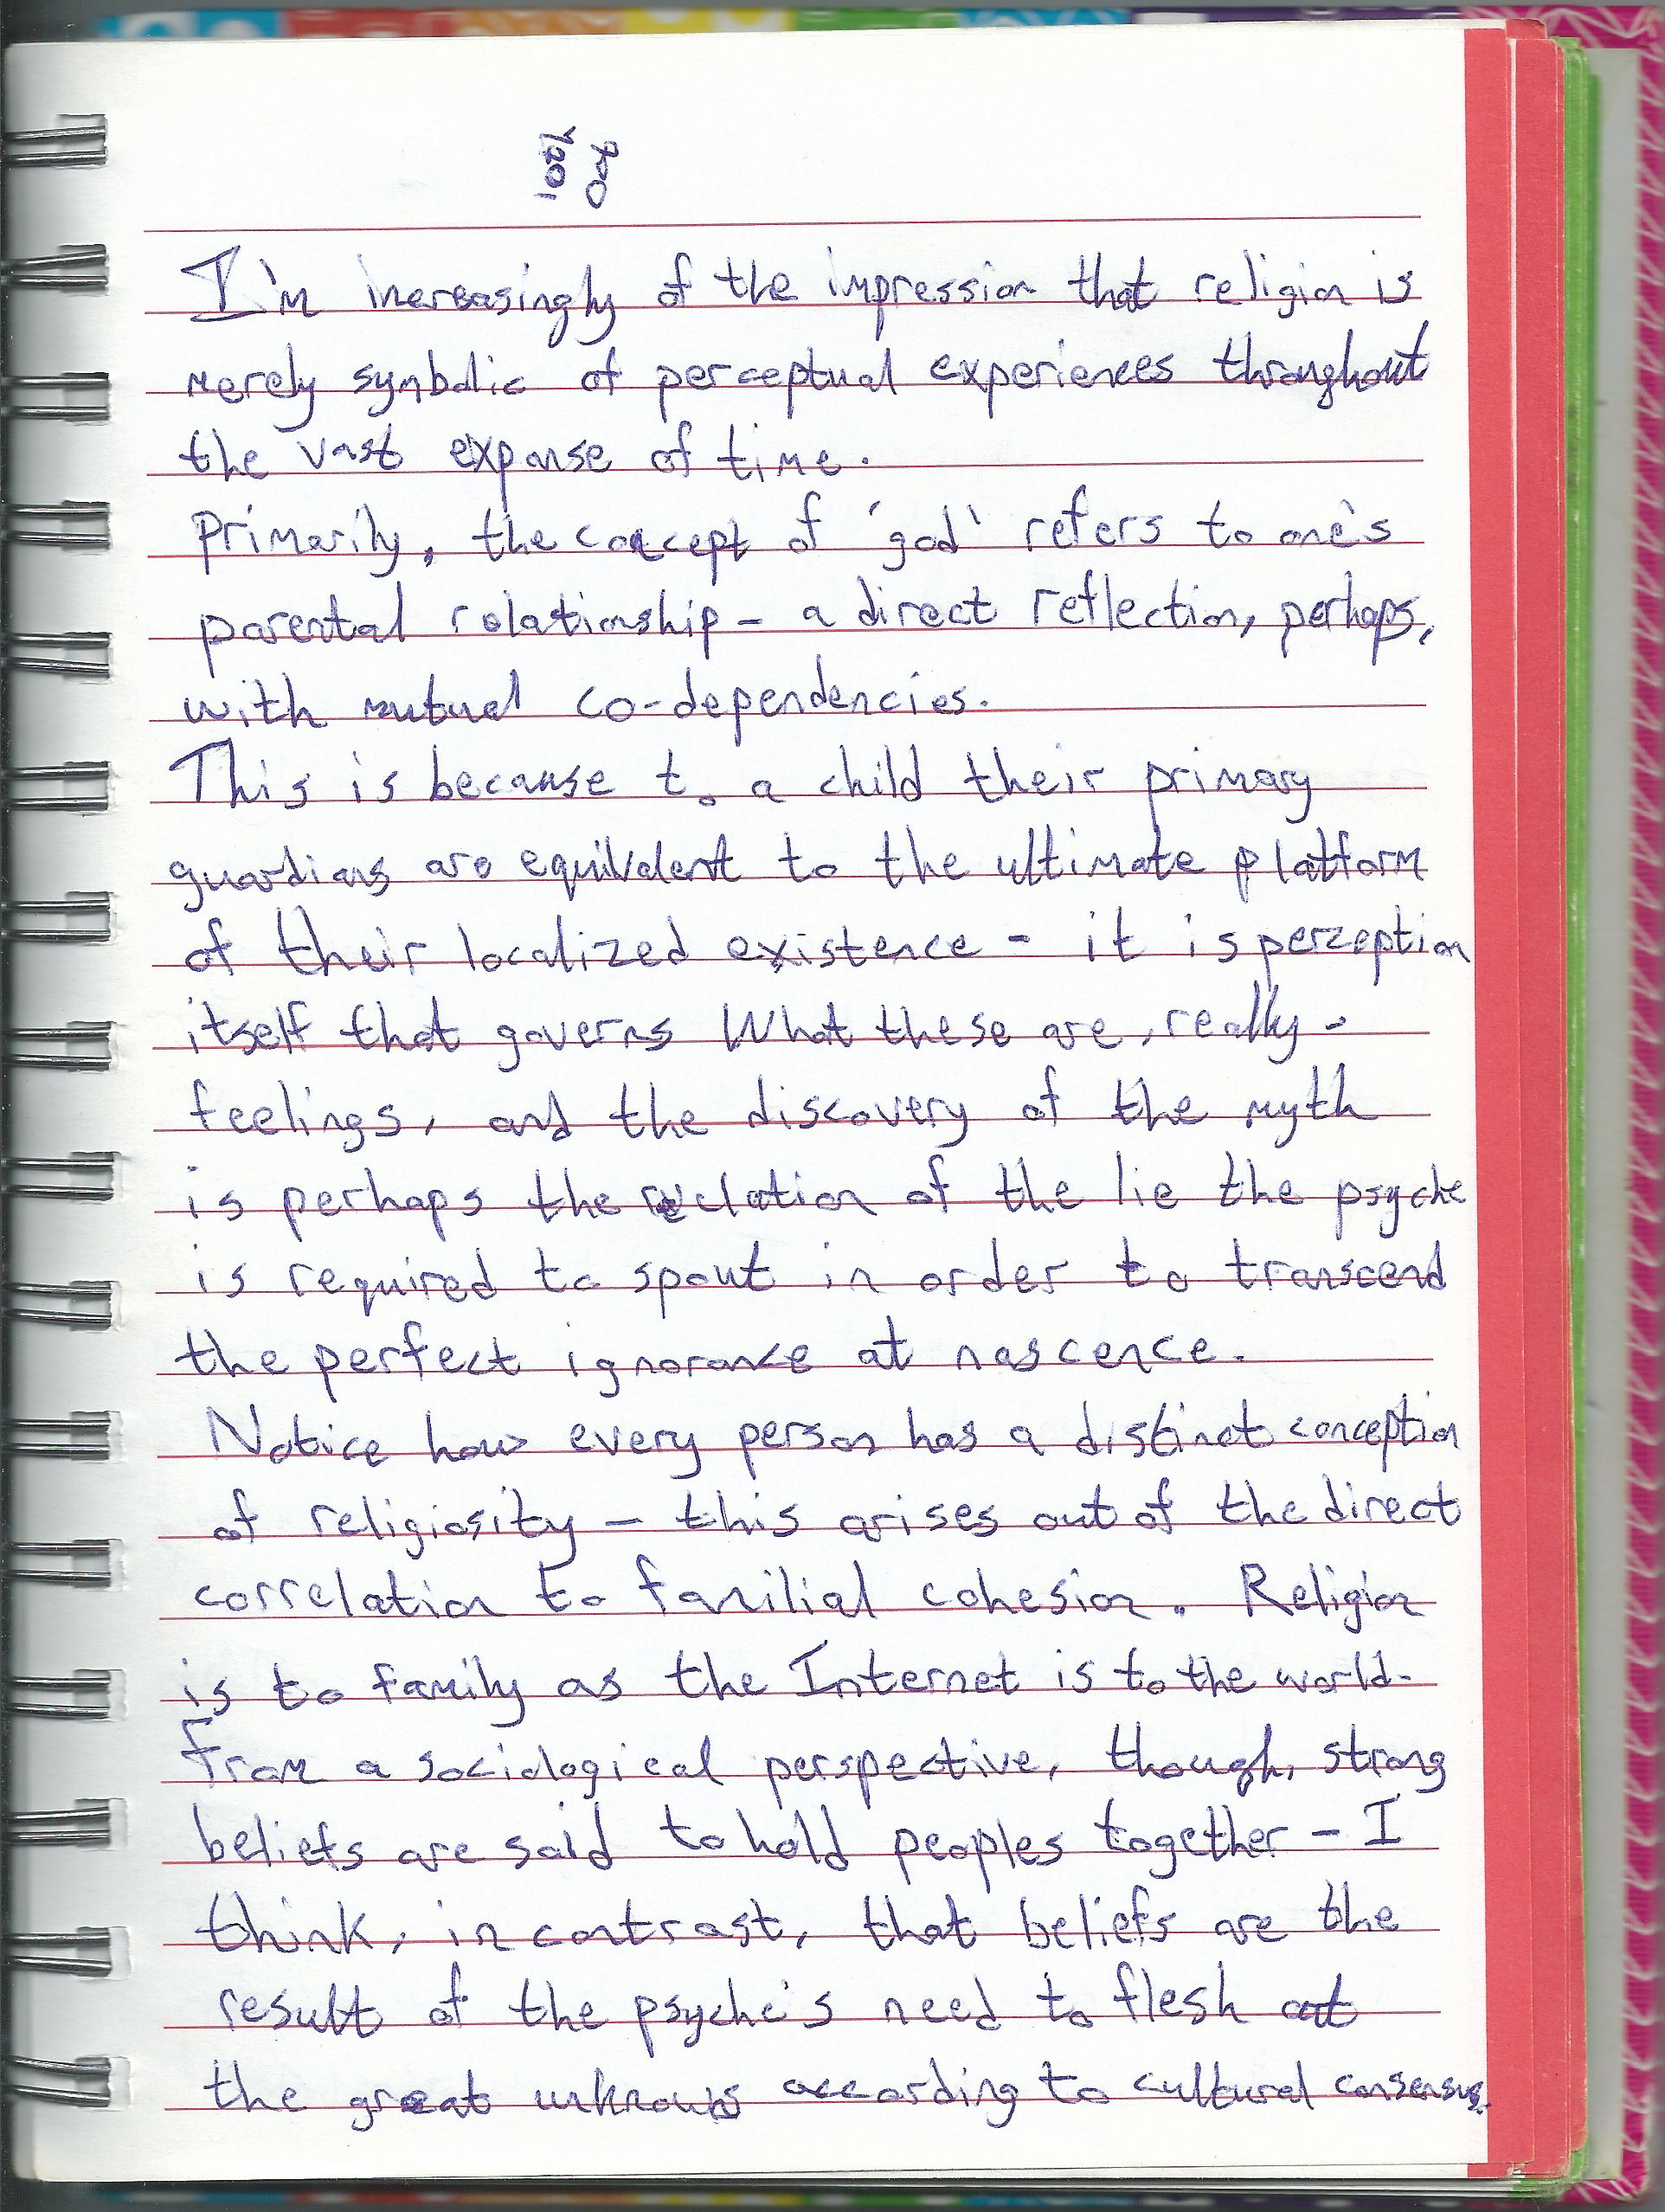 I'm increasingly of the impression that religion is
merely symbolic of perceptual experiences throughout
the vast expanse of time.
Primarily, the concept of 'god' refers to one's
parental relationship - a direct reflection, perhaps,
with mutual co-dependencies.
This is because to a child their primary
guardians are equivalent to the ultimate platform
of their localized existence - it is perception
itself that governs what these are, really -
feelings, and the discovery of the myth
is perhaps the revelation of the lie the psyche
is required to spout in order to transcend
the perfect ignorance at nascence.
Notice how every person has a distinct conception
of religiosity - this arises out of the direct
correlation to familial cohesion. Religion
is to family as the Internet is to the world.
From a sociological perspective, though, strong
beliefs are said to hold peoples together - I
think, in contrast, that beliefs are the
result of the psyche's need to flesh out
the great unknowns according to cultural consensus.